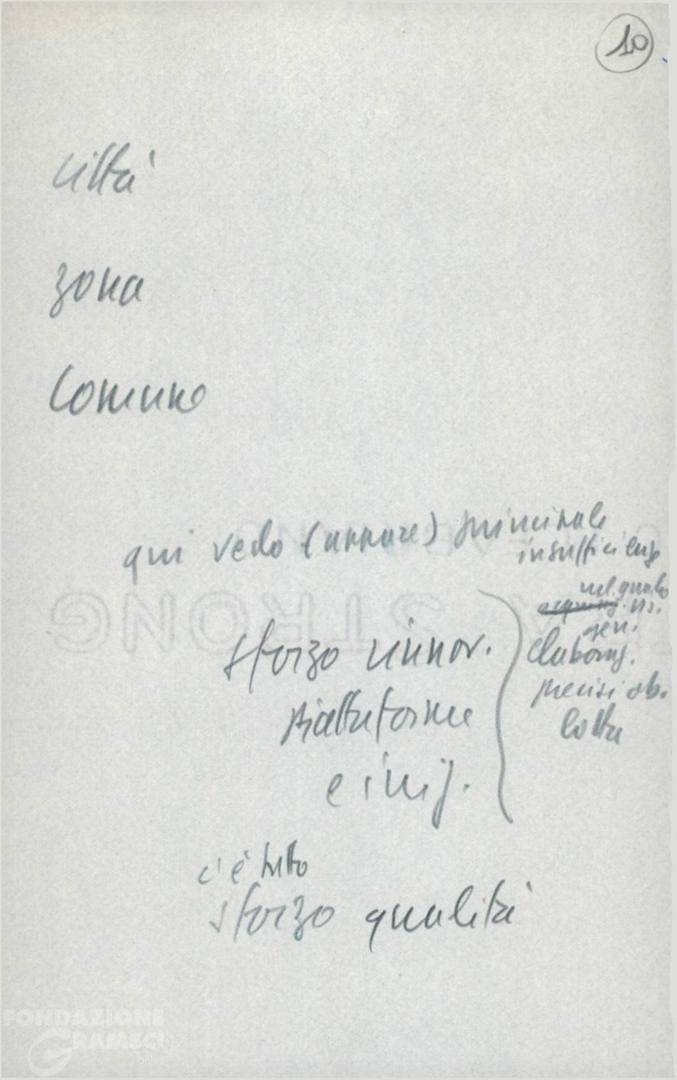 10
città
zona
Comune
qui vedo (ancora) principale
insufficienza
nel quale
gen.
sforzo rinnov.
elaboraz.
piattaforme
precisi ob.
lotta
e iniz.
c'è stato
sforzo qualità
STRONG
FONDAZIONE
GRAMSCI